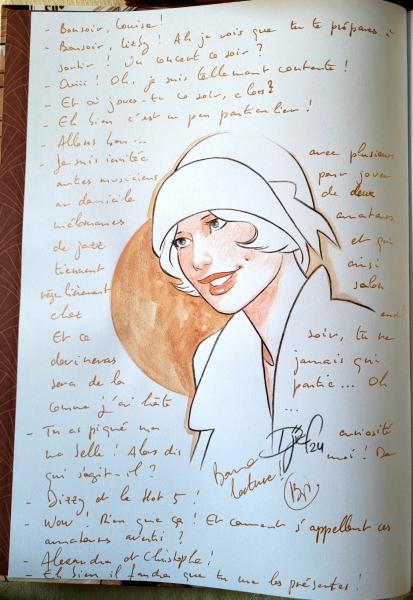 - Bonsoir, Louise !
- Bonsoir, Lizzy ! Ah je vois que tu te prépares à
sortir ! Un concert ce soir ?
- Ouiii ! Oh, je suis tellement contente !
- Et où joues-tu ce soir, alors ?
- Eh bien c'est un peu particulier !
- Allons bon...
- Je suis invitée avec plusieurs
autres musiciens pour jouer
au domicile de deux
mélomanes amateurs
de jazz et qui
tiennent ainsi
régulièrement salon
chez eux !
Et ce soir, tu ne
devineras jamais qui
sera de la partie... Oh
comme j'ai hâte ...
- Tu as piqué ma curiosité
ma belle ! Alors dis moi ! De
qui s'agit-il ?
Bonne lecture !!
Djief 24
- Dizzy et le Hot 5 !
- Wow ! Rien que ça ! Et comment s'appellent ces
amateurs avertis ?
- Alexandra et Christophe !
- Eh bien il faudra que tu me les présentes !